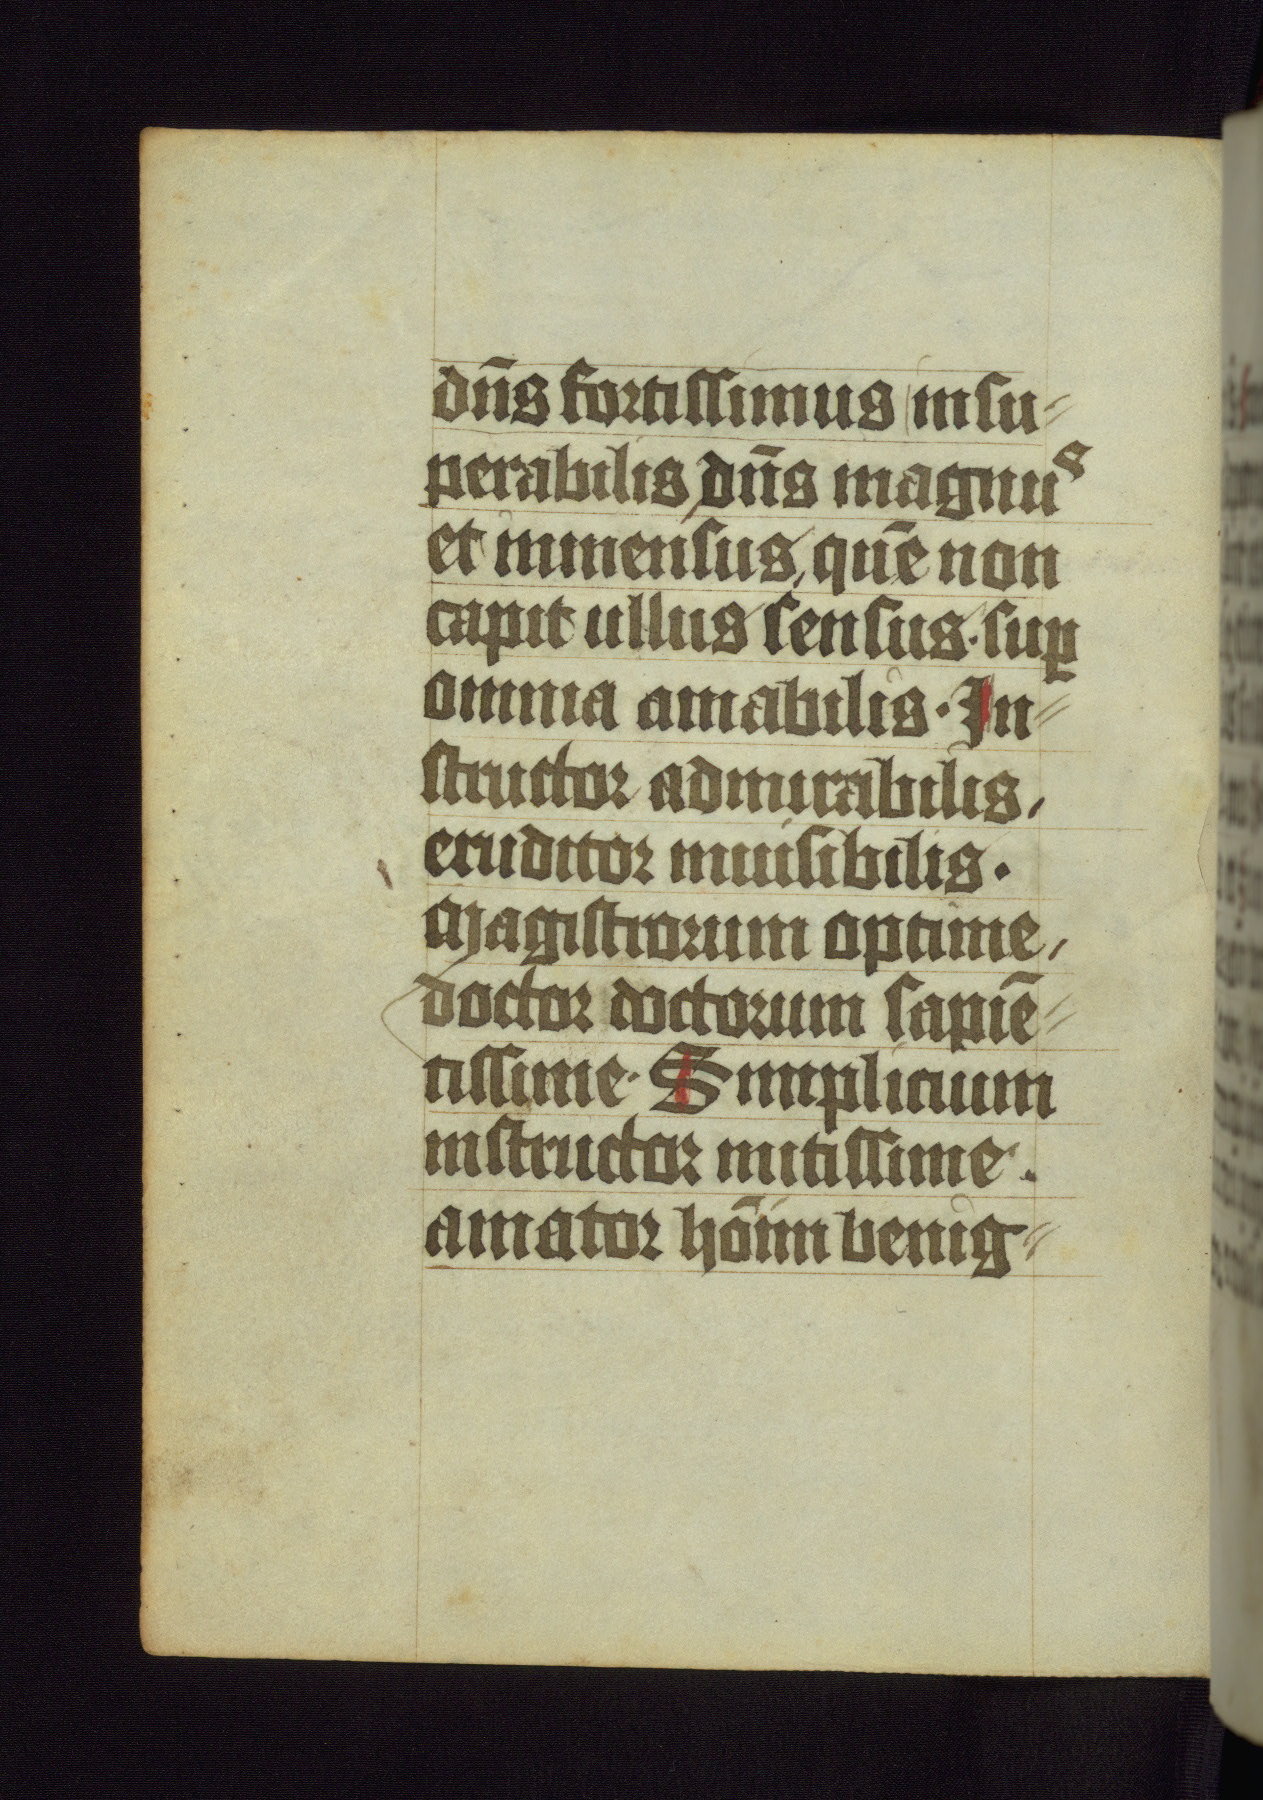 dn̄s fortissimus insu⸗
perabilis dn̄s magnus
et inmensus, quē non
capit ullus sensus · suꝑ
omnia amabilis · In⸗
structor admirabilis,
eruditor inuisibilis ·
Magistrorum optime,
doctor doctorum sapiē⸗
tissime · Simplicium
instructor mitissime ·
amator hōim benig⸗